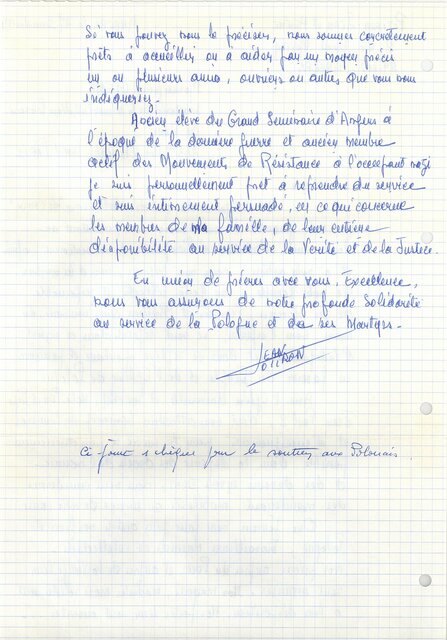 Si vous pouvez nous le préciser, nous sommes concrètement
prêts à accueillir ou à aider par un moyen précis
un ou plusieurs amis, ouvriers ou autres que vous nous
indiqueriez.
Ancien élève du Grand Séminaire d'Angers à
l'époque de la dernière guerre et ancien membre
actif des Mouvements de Résistance à l'occupant nazi
je suis personnellement prêt à reprendre du service
et suis intimement persuadé, en ce qui concerne
les membres de ma famille, de leur entière
disponibilité au service de la Vérité et de la Justice.
En union de prières avec vous, Excellence,
nous vous assurons de notre profonde Solidarité
au service de la Pologne et des ses Martyrs.
JEAN
Ci-joint 1 chèque pour le soutien aux Polonais.